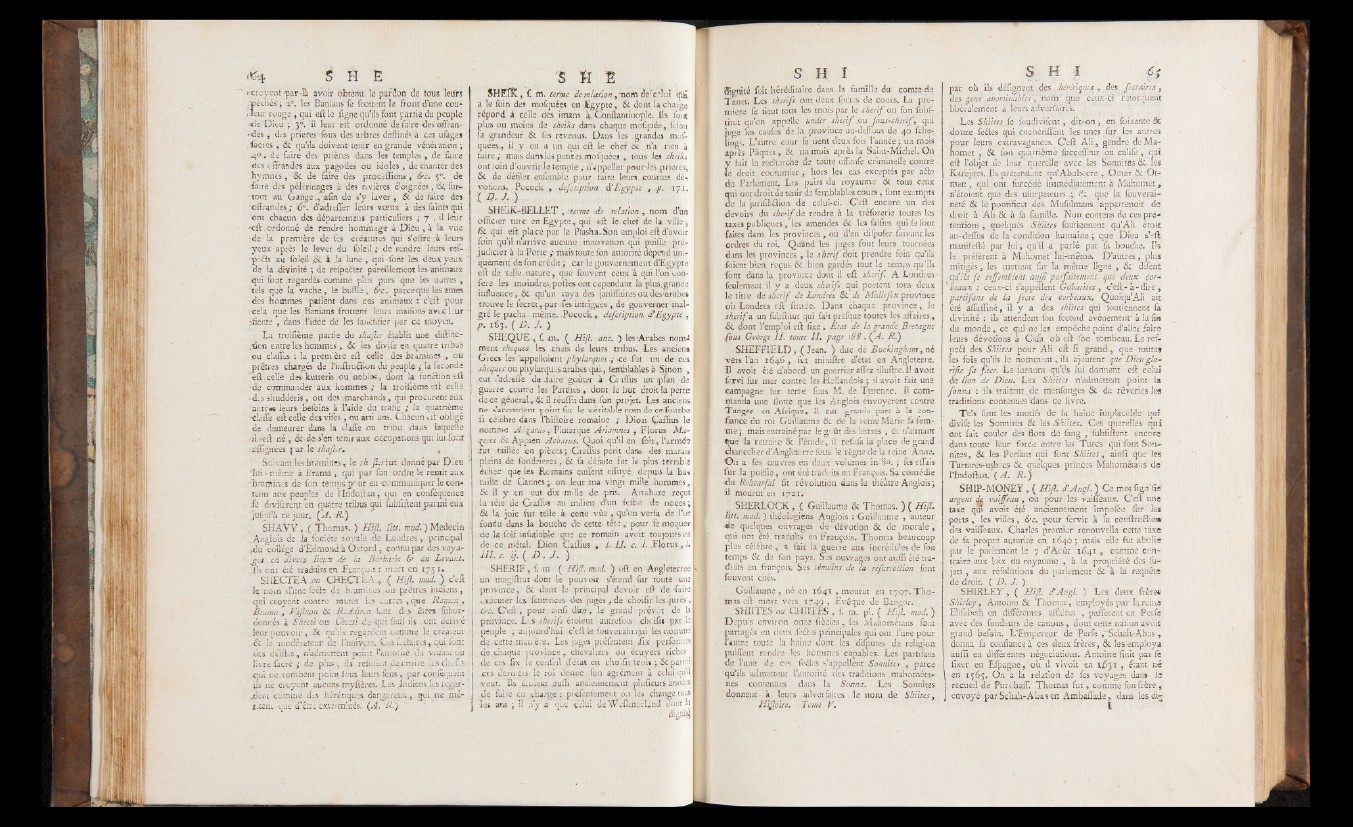 64 S H E
croyent par-là avoir obtenu le pardon de tous leurs
péchés ; 2°. les Banians se frottent le front d'une cou-
leur rouge, qui est le signe qu'ils font partie du peuple
de Dieu ; 3°. il leur est ordonné de faire des offran-
des, des prieres sous des arbres destinés à ces usages
sacrés, & qu'ils doivent tenir en grande vénération ;
4°. de faire des prières dans les temples, de faire
des offrandes aux pagodes ou idoles, de chanter des
hymnes, & de faire des processions, &c. 5°. de
faire des pélerinages à des rivières éloignées, & sur-
tout au Gange, afin de s'y laver, & de faire des
offrandes ; 6°. d'adresser leurs vœux à des saints qui
ont chacun des départemens particuliers ; 7°. il leur
est ordonné de rendre hommage à Dieu, à la vue
de la première de ses créatures qui s'offre à leurs
yeux après le lever du soleil ; de rendre leurs res-
pects au soleil & à la lune, qui sont les deux yeux
de la divinité ; de respecter pareillement les animaux
qui sont regardés comme plus purs que les autres,
tels que la vache, le buffle, &c. parceque les ames
des hommes passent dans ces animaux : c'est pour
cela que les Banians frottent leurs maisons avec leur
fiente, dans l'idée de les sanctifier par ce moyen.
La troisième partie du shaster établit une distinc-
tion entre les hommes, & les divise en quatre tribus
ou classes : la première est celle des bramines, ou
prêtres chargés de l'instruction du peuple ; la seconde
est celle des kuteris ou nobles, dont la fonction est
de commander aux hommes ; la troisième est celle
des shudderis, ou des marchands, qui procurent aux
autres leurs besoins à l'aide du trafic ; la quatrième
classe est celle des vises, ou artisans. Chacun est obligé
de demeurer dans la classe ou tribu dans laquelle
il est né, & de s'en tenir aux occupations qui lui sont
assignées par le shaster.
Suivant les bramines, le shaster fut donné par Dieu
lui-même à Brama, qui par son ordre le remit aux
bramines de son temps pour en communiquer le con-
tenu aux peuples de l'Indostan, qui en conséquence
se divisèrent en quatre tribus qui subsistent parmi eux
jusqu'à ce jour. (A. R.)
SHAVV, ( Thomas. ) Hist. litt. mod. ) Médecin
Anglois de la société royale de Londres, principal
du collège d'Edmond à Oxford, connu par des voya-
ges en divers lieux de la Barbarie & du Levant.
Ils ont été traduits en François : mort en 1751.
SHECTEA ou CHECTEA, ( Hist. mod. ) c'est
le nom d'une secte de bramines ou prêtres indiens,
qui croyent contre toutes les autres, que Ramon,
Brama, Vistnou & Ruddiren sont des êtres subor-
donnés à Shecti ou Checti de qui seul ils ont dérivé
leur pouvoir, & qu'ils regardent comme le créateur
& le modérateur de l'univers. Ces sectaires, qui sont
des déistes, n'admettent point l'autorité du vedam ou
livre sacré ; de plus, ils refusent de croire les choses
qui ne tombent point sous leurs sens, par conséquent
ils ne croyent aucuns mystères. Les Indiens les regar-
dent comme des hérétiques dangereux, qui ne mé-
ritent que d'être exterminés. (A. R.)
S H E
SHEIK, s. m. terme de relation, nom de celui qui
a le soin des mosquées en Egypte, & dont la charge
répond à celle des imans à Constantinople. Ils sont
plus ou moins de sheiks dans chaque mosquée, selon
sa grandeur & ses revenus. Dans les grandes mos-
quées, il y en a un qui est le chef & n'a rien à
faire ; mais dans les petites mosquées, tous les sheiks
ont soin d'ouvrir le temple, d'appeller pour les prieres,
& de défiler ensemble pour faire leurs courtes dé-
votions. Pocock, description d'Egypte, p. 171.
( D. J. )
SHEIK-BELLET, terme de relation, nom d'un
officier turc en Egypte, qui est le chef de la ville,
& qui est placé par le Pacha. Son emploi est d'avoir
soin qu'il n'arrive aucune innovation qui puisse pré-
judicier à la Porte ; mais toute son autorité dépend uni-
quement de son crédit ; car le gouvernement d'Egypte
est de telle nature, que souvent ceux à qui l'on con-
fère les moindres postes ont cependant la plus grande
influence, & qu'un caya des janissaires ou des arabes
trouve le secret, par ses intrigues, de gouverner mal-
gré le pacha même. Pocock, description d'Egypte,
p. 163. ( D. J. )
SHEQUE, s. m. ( Hist. anc. ) les Arabes nom-
ment sheques les chefs de leurs tribus. Les anciens
Grecs les appelloient phylarques ; ce fut un de ces
sheques ou phylarques arabes qui, semblables à Sinon,
eut l'adresse de faire goûter à Crassus un plan de
guerre contre les Parthes, dont le but étoit la perte
de ce général, & il réussit dans son projet. Les anciens
ne s'accordent point sur le véritable nom de ce fourbe
si célebre dans l'histoire romaine ; Dion Cassius le
nomme Augarus, Plutarque Ariamnes, Florus Ma-
zeres & Appien Acbarus. Quoi qu'il en soit, l'armée
fut taillée en pièces ; Crassus périt dans des marais
pleins de fondrieres, & sa défaite fut le plus terrible
échec que les Romains eussent essuyé depuis la ba-
taille de Cannes ; on leur tua vingt mille hommes,
& il y en eut dix mille de pris. Artabaze reçut
la tête de Crassus au milieu d'un festin de noces ;
& la joie fut telle à cette vûe, qu'on versa de l'or
fondu dans la bouche de cette tête, pour se moquer
de la soif insatiable que ce romain avoit toujours eu
de ce métal. Dion Cassius, l. II. c. l. Florus, l.
III. c. ij. ( D. J. )
SHERIF, s. m. ( Hist. mod. ) est en Angleterre
un magistrat dont le pouvoir s'étend sur toute une
province, & dont le principal devoir est de faire
exécuter les sentences des juges, de choisir les jurés,
&c. C'est, pour ainsi dire, le grand prévôt de la
province. Les sherifs étoient autrefois choisis par le
peuple ; aujourd'hui c'est le souverain qui les nomme
de cette manière. Les juges présentent six personnes
de chaque province, chevaliers ou écuyers riches :
de ces six le conseil d'état en choisit trois ; & parmi
ces derniers le roi donne son agrément à celui qu'il
veut. Ils étoient aussi anciennement plusieurs années
de suite en charge ; présentement on les change tous
les ans ; il n'y a que celui de Westmorland dont la
dignité
S H I
dignité soit héréditaire dans la famille du comte de
Tanet. Les sherifs ont deux sortes de cours. La pre-
miere se tient tous les mois par le sherif ou son subs-
titut qu'on appelle under sherif ou sous-sherif, qui
juge les causes de la province au-dessous de 40 sche-
lings. L'autre cour se tient deux fois l'année ; un mois
après Pâques, & un mois après la Saint-Michel. On
y fait la recherche de toute offense criminelle contre
le droit coutumier, hors les cas exceptés par acte
du Parlement. Les pairs du royaume & tous ceux
qui ont droit de tenir de semblables cours, sont exempts
de la jurisdiction de celui-ci. C'est encore un des
devoirs du sherif de rendre à la trésorerie toutes les
taxes publiques, les amendes & les saisies qui se font
faites dans les provinces, ou d'en disposer suivant les
ordres du roi. Quand les juges font leurs tournées
dans les provinces, le sherif doit prendre soin qu'ils
soient bien reçus & bien gardés tout le temps qu'ils
sont dans la province dont il est sherif. A Londres
seulement il y a deux sherifs qui portent tous deux
le titre de sherif de Londres & de Midlesex province
où Londres est située. Dans chaque province, le
sherif a un substitut qui fait presque toutes les affaires,
& dont l'emploi est fixe, Etat de la grande Bretagne
sous George II. tome II. page 188. (A. R.)
SHEFFIELD, ( Jean. ) duc de Buckingham, né
vers l'an 1646, fut ministre d'état en Angleterre.
Il avoit été d'abord un guerrier assez illustre. Il avoit
servi sur mer contre les Hollandois ; il avoit fait une
campagne sur terre sous M. de Turenne. Il com-
manda une flotte que les Anglois envoyèrent contre
Tanger en Afrique. Il eut grande part à la con-
fiance du roi Guillaume & de la reine Marie sa fem-
me ; mais entraîné par le goût des lettres, & n'aimant
que la retraite & l'étude, il refusa la place de grand
chancelier d'Angleterre sous le règne de la reine Anne.
On a ses œuvres en deux volumes in-8°. ; ses essais
sur la poésie, ont été traduits en François. Sa comédie
du Rehearsal fit révolution dans le théâtre Anglois ;
il mourut en 1721.
SHERLOCK, ( Guillaume & Thomas. ) ( Hist.
litt. mod. ) théologiens Anglois : Guillaume, auteur
de quelques ouvrages de dévotion & de morale,
qui ont été traduits en François. Thomas beaucoup
plus célèbre, a fait la guerre aux incrédules de son
temps & de son pays. Ses ouvrages ont aussi été tra-
duits en françois. Ses témoins de la résurrection sont
souvent cités.
Guillaume, né en 1641, mourut en 1707. Tho-
mas est mort vers 1749, Evêque de Bangor.
SHIITES ou CHIITES, s. m. pl. ( Hist. mod. )
Depuis environ onze siècles, les Mahométans sont
partagés en deux sectes principales qui ont l'une pour
l'autre toute la haine dont les disputes de religion
puissent rendre les hommes capables. Les partisans
de l'une de ces sectes s'appellent Sonnites, parce
qu'ils admettent l'autorité des traditions mahométa-
nes contenues dans la Sonna. Les Sonnites
donnent à leurs adversaires le nom de Shiites,
Histoire. Tome V.
S H I 65
par où ils désignent des hérétiques, des sectaires,
des gens abominables, nom que ceux-ci retorquent
libéralement à leurs adversaires.
Les Shiites se soudivisent, dit-on, en soixante &
douze sectes qui enchérissent les unes sur les autres
pour leurs extravagances. C'est Ali, gendre de Ma-
homet, & son quatrième successeur ou calife, qui
est l'objet de leur querelle avec les Sonnites & les
Karejites. Ils prétendent qu'Abubecre, Omar & Ot-
man, qui ont succédé immédiatement à Mahomet,
n'étoient que des usurpateurs ; & que la souverai-
neté & le pontificat des Musulmans appartenoit de
droit à Ali & à sa famille. Non contens de ces pré-
tentions, quelques Shiites soutiennent qu'Ali étoit
au-dessus de la condition humaine ; que Dieu s'est
manifesté par lui ; qu'il a parlé par sa bouche. Ils
le préfèrent à Mahomet lui-même. D'autres, plus
mitigés, les mettent sur la même ligne, & disent
qu'ils se ressemblent aussi parfaitement que deux cor-
beaux : ceux-ci s'appellent Gobaites, c'est-à-dire,
partisans de la secte des corbeaux. Quoiqu'Ali ait
été assassiné, il y a des shiites qui soutiennent sa
divinité ; ils attendent son second avénement à la fin
du monde, ce qui ne les empêche point d'aller faire
leurs dévotions à Cufa où est son tombeau. Le res-
pect des Shiites pour Ali est si grand, que toutes
les fois qu'ils le nomment, ils ajoutent que Dieu glo-
rifie sa face. Le surnom qu'ils lui donnent est celui
de lion de Dieu. Les Shiites n'admettent point la
sonna : ils traitent de mensonges & de rêveries les
traditions contenues dans ce livre.
Tels sont les motifs de la haine implacable qui
divise les Sonnites & les Shiites. Ces querelles qui
ont fait couler des flots de sang, subsistent encore
dans toute leur force entre les Turcs qui sont Son-
nites, & les Persans qui sont Shiites, ainsi que les
Tartares-usbecs & quelques princes Mahométans de
l'Indostan. (A. R.)
SHIP-MONEY, ( Hist. d'Angl. ) Ce mot signifie
argent de vaisseau, ou pour les vaisseaux. C'est une
taxe qui avoit été anciennement imposée sur les
ports, les villes, &c. pour servir à la construction
des vaisseaux. Charles premier renouvella cette taxe
de sa propre autorité en 1640 ; mais elle fut abolie
par le parlement le 7 d'Août 1641, comme con-
traire aux loix du royaume, à la propriété des su-
jets, aux résolutions du parlement & à la requête
de droit. ( D. J. )
SHIRLEY, ( Hist. d'Angl. ) Les deux frères
Shirley, Antoine & Thomas, employés par la reine
Elisabeth en différentes affaires, passèrent en Perse
avec des fondeurs de canons, dont cette nation avoit
grand besoin. L'Empereur de Perse, Schah-Abas,
donna sa confiance à ces deux frères, & les employa
aussi en différentes négociations. Antoine finit par se
fixer en Espagne, où il vivoit en 1631, étant né
en 1565. On a la relation de ses voyages dans le
recueil de Purchass. Thomas fut, comme son frère,
envoyé par Schah-Abas en Ambassade, dans les di-
I